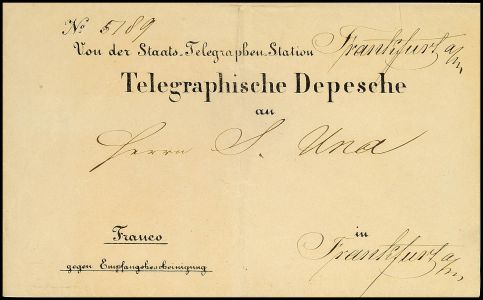 № 5189
Von der Staats-Telegraphen-Station Frankfurt a/m
Telegraphische Depesche
an
Herrn S. Una
Franco
gegen Empfangsbescheinigung
in
Frankfurt a/m